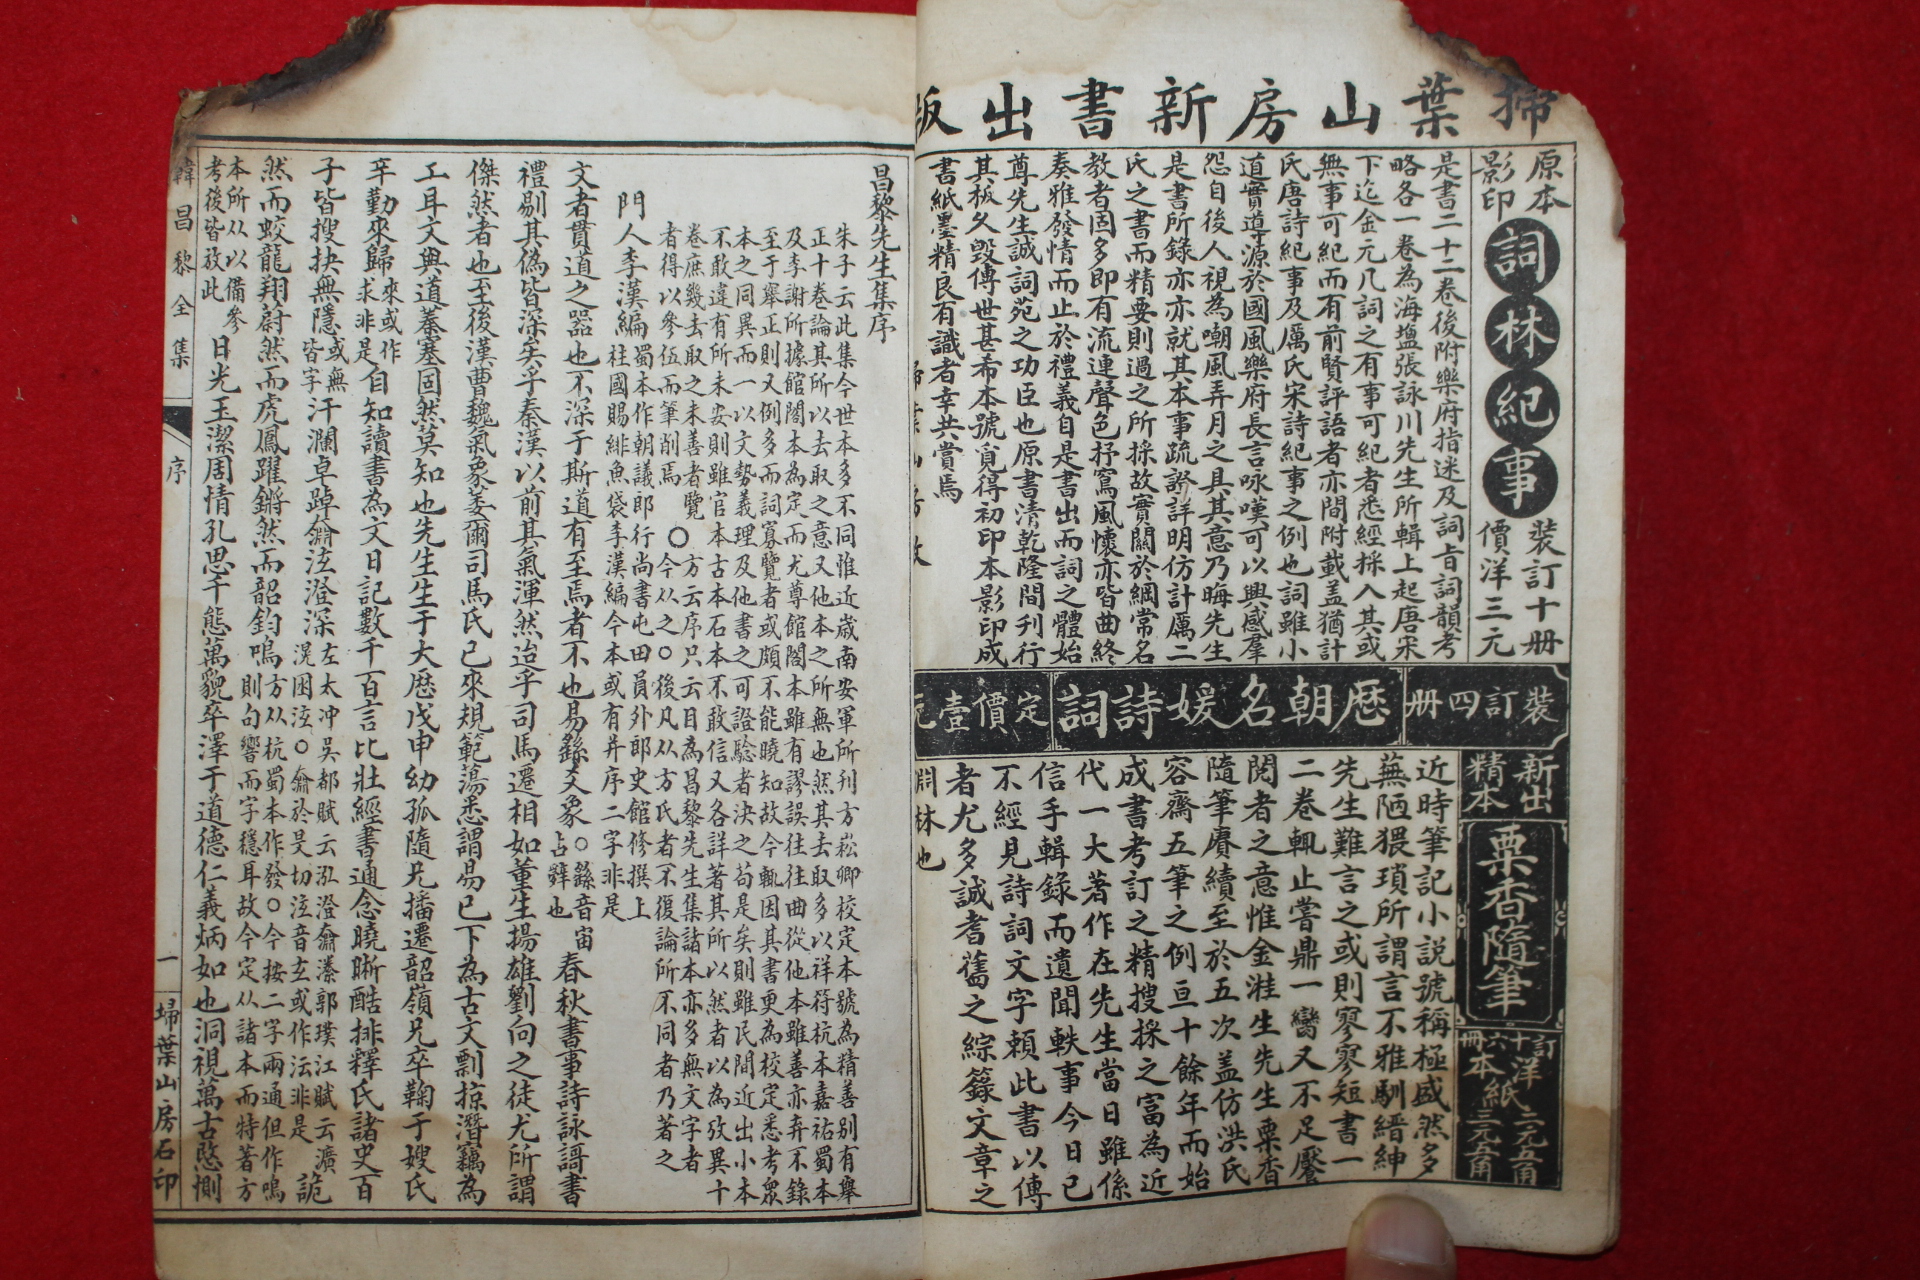 掃葉山房新書出版
原本影印
詞林紀事
裝訂十册
價洋三元
是書二十二卷後附樂府指迷及詞旨詞韻考
略各一卷為海塩張詠川先生所輯上起唐宋
下迄金元凡詞之有事可紀者悉經採入其或
無事可紀而有前賢評語者亦間附載盖猶計
氏唐詩紀事及厲氏宋詩紀事之例也詞雖小
道實導源於國風樂府長言咏嘆可以興感羣
怨自後人視為嘲風弄月之具其意乃晦先生
是書所錄亦亦就其本事疏證詳明仿計厲二
氏之書而精要則過之所採故實關於綱常名
教者固多即有流連聲色抒寫風懷亦皆曲終
奏雅發情而止於禮義自是書出而詞之體始
尊先生誠詞苑之功臣也原書清乾隆間刊行
其板久毀傳世甚希本號覓得初印本影印成
書紙墨精良有識者幸共賞焉
裝訂四册
歷朝名媛詩詞
定價壹元
新出精本
粟香隨筆
訂十六册
洋紙二元五角
本紙三元
近時筆記小説號稱極盛然多
蕪陋猥瑣所謂言不雅馴縉紳
先生難言之或則寥寥短書一
二卷輒止嘗鼎一臠又不足饜
閱者之意惟金溎生先生粟香
隨筆賡續至於五次盖仿洪氏
容齋五筆之例亘十餘年而始
成書考訂之精搜採之富為近
代一大著作在先生當日雖係
信手輯錄而遺聞軼事今日已
不經見詩詞文字賴此書以傳
者尤多誠耆舊之綜籙文章之
淵林也
昌黎先生集序
朱子云此集今世本多不同惟近歲南安軍所刊方崧卿校定本號為精善别有舉
正十卷論其所以去取之意又他本之所無也然其去取多以祥符杭本嘉祐蜀本
及李謝所據館閣本為定而尤尊館閣本雖有謬誤往往曲從他本雖善亦弃不錄
至于舉正則又例多而詞寡覽者或頗不能曉知故今輒因其書更為校定悉考眾
本之同異而一以文勢義理及他書之可證驗者決之苟是矣則雖民間近出小本
不敢違有所未安則雖官本古本石本不敢信又各詳著其所以然者以為攷異十
卷庶幾去取之未善者覽 ○方云序只云目為昌黎先生集諸本亦多無文字者
者得以參伍而筆削焉 ○今从之○後凡从方氏者不復論所不同者乃著之
門人李漢編蜀本作朝議郎行尚書屯田員外郎史館修撰上
柱國賜緋魚袋李漢編今本或有并序二字非是
文者貫道之器也不深于斯道有至焉者不也易繇爻象○繇音宙占辭也春秋書事詩詠謌書
禮剔其偽皆深矣乎秦漢以前其氣渾然迨乎司馬遷相如董生揚雄劉向之徒尤所謂
傑然者也至後漢曹魏氣象萎爾司馬氏已來規範蕩悉謂易已下為古文剽掠潛竊為
工耳文與道蓁塞固然莫知也先生生于大厯戊申幼孤隨兄播遷韶嶺兄卒鞠于嫂氏
辛勤來歸來或作求非是自知讀書為文日記數千百言比壯經書通念曉晰酷排釋氏諸史百
子皆搜抉無隱或無皆字汗瀾卓踔奫泫澄深左太冲吳都賦云泓澄奫潫郭璞江賦云瀇滉囦泫○奫於旻切泫音玄或作沄非是詭
然而蛟龍翔蔚然而虎鳳躍鏘然而韶鈞鳴方从杭蜀本作發○今按二字兩通但作鳴則句響而字穩耳故今定从諸本而特著方
本所从以備參考後皆放此日光玉潔周情孔思千態萬貌卒澤于道德仁義炳如也洞視萬古愍惻
韓昌黎全集
序
一
埽葉山房石印